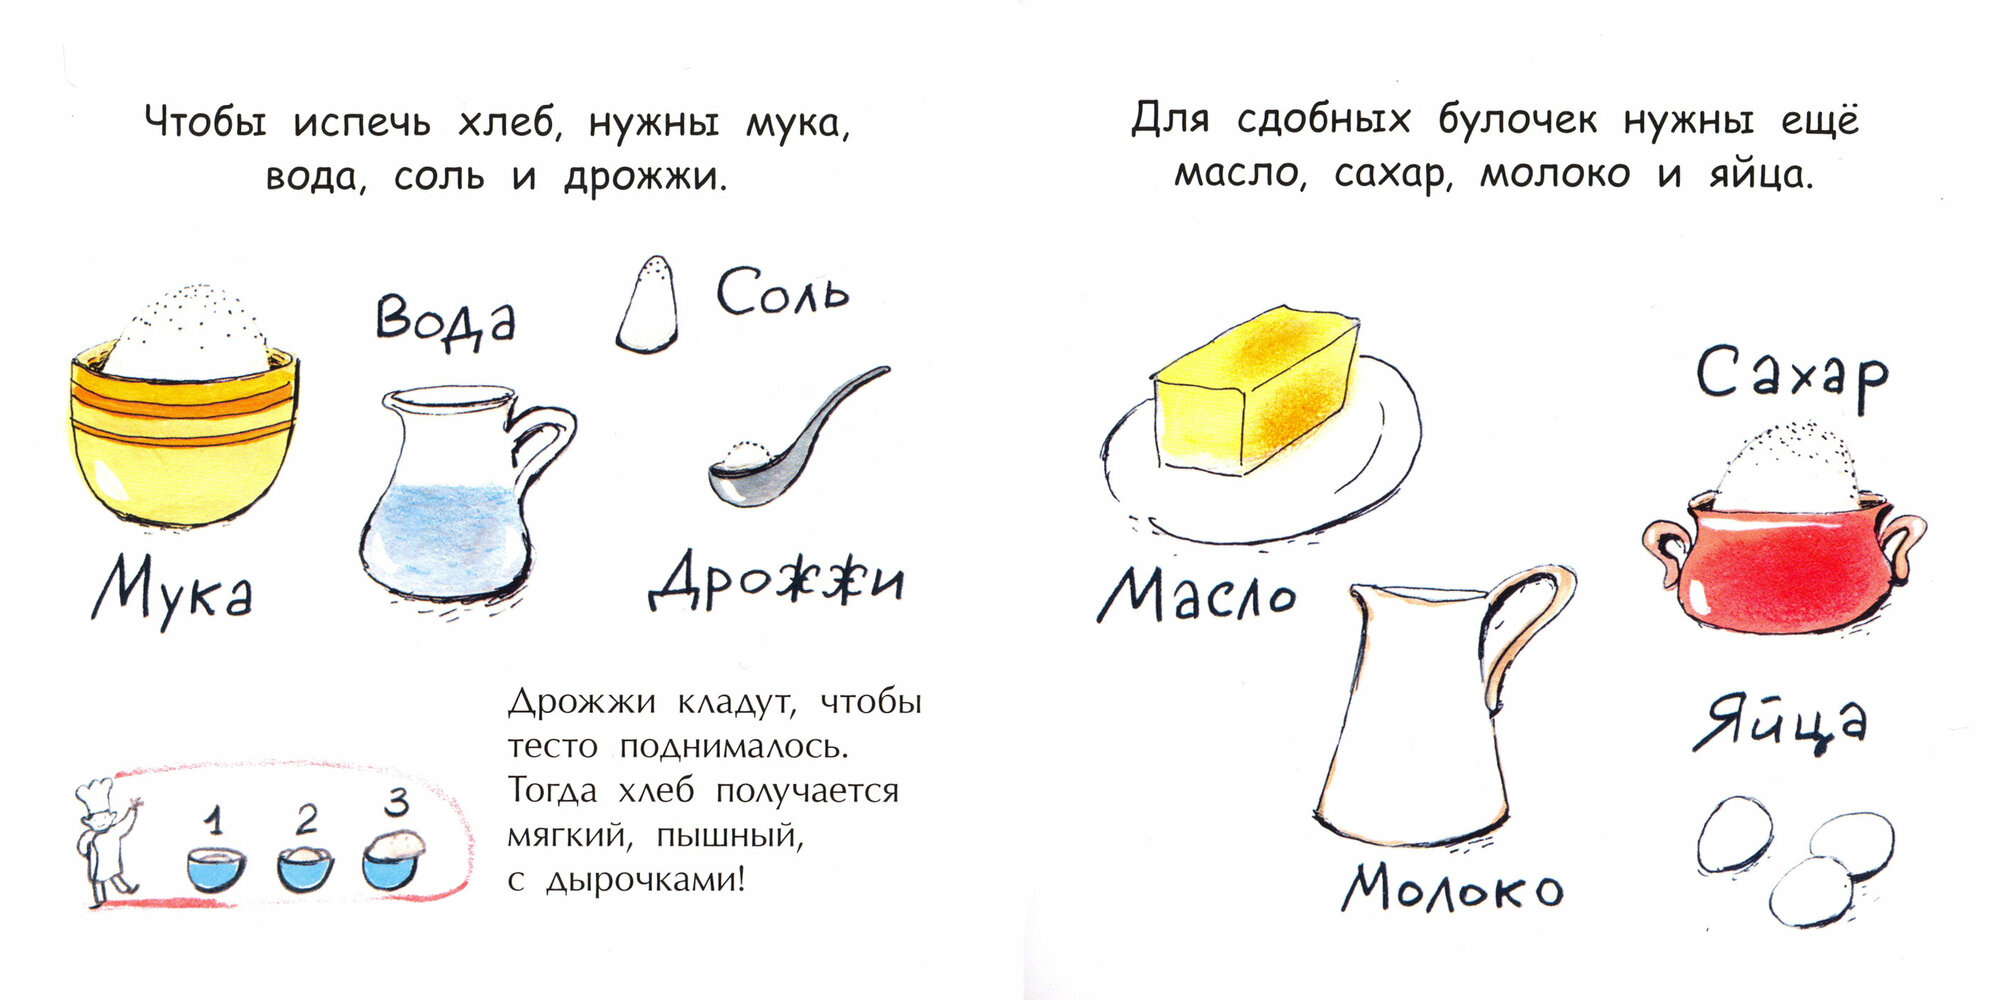 Чтобы испечь хлеб, нужны мука,
вода, соль и дрожжи.
Мука
Вода
Соль
Дрожжи
1 2 3
Дрожжи кладут, чтобы
тесто поднималось.
Тогда хлеб получается
мягкий, пышный,
с дырочками!
Для сдобных булочек нужны ещё
масло, сахар, молоко и яйца.
Масло
Сахар
Молоко
Яйца